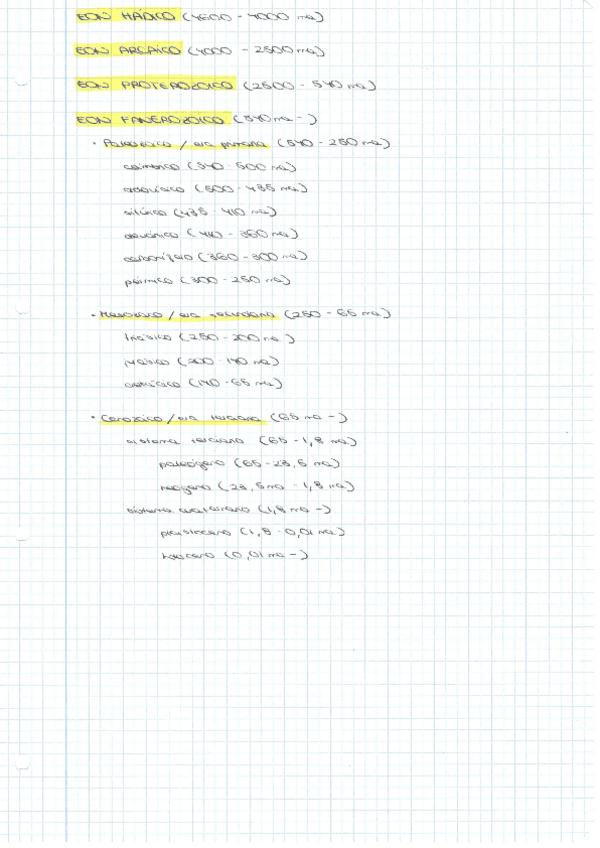 EON HÁDICO (4600 - 4000 ma)
EON ARCAICO (4000 - 2500 ma)
EON PROTEROZOICO (2500 - 540 ma)
EON FANEROZOICO (540 ma - )
• Paleozoico / era primaria (540 - 250 ma)
cámbrico (540 - 500 ma)
ordovícico (500 - 435 ma)
silúrico (435 - 410 ma)
devónico (410 - 360 ma)
carbonífero (360 - 300 ma)
pérmico (300 - 250 ma)
• Mesozoico / era secundaria (250 - 65 ma)
triásico (250 - 200 ma)
jurásico (200 - 140 ma)
cretácico (140 - 65 ma)
• Cenozoico / era terciaria (65 ma - )
sistema terciario (65 - 1,8 ma)
paleógeno (65 - 23,5 ma)
neógeno (23,5 ma - 1,8 ma)
sistema cuaternario (1,8 ma - )
pleistoceno (1,8 - 0,01 ma)
holoceno (0,01 ma - )